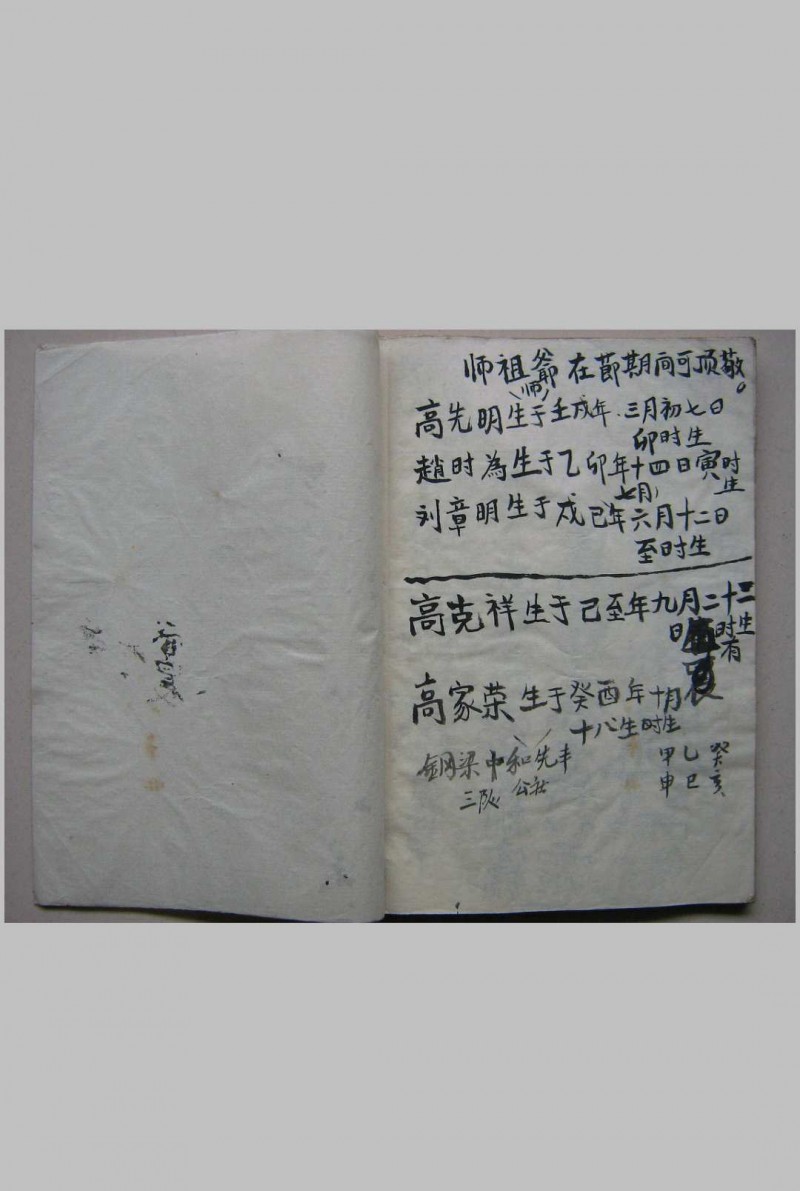 师祖爺在節期间可顶敬。
（师）
高先明生于壬戌年.三月初七日
卯时生
趙时為生于乙卯年十四日寅时生
七月）
刘章明生于戊己年六月十二日
至时生
高克祥生于己至年九月二十二
日时生
有
高家荣生于癸酉年十月
十八生时生
銅梁中和先丰
三队 公社
甲乙癸
申巳亥